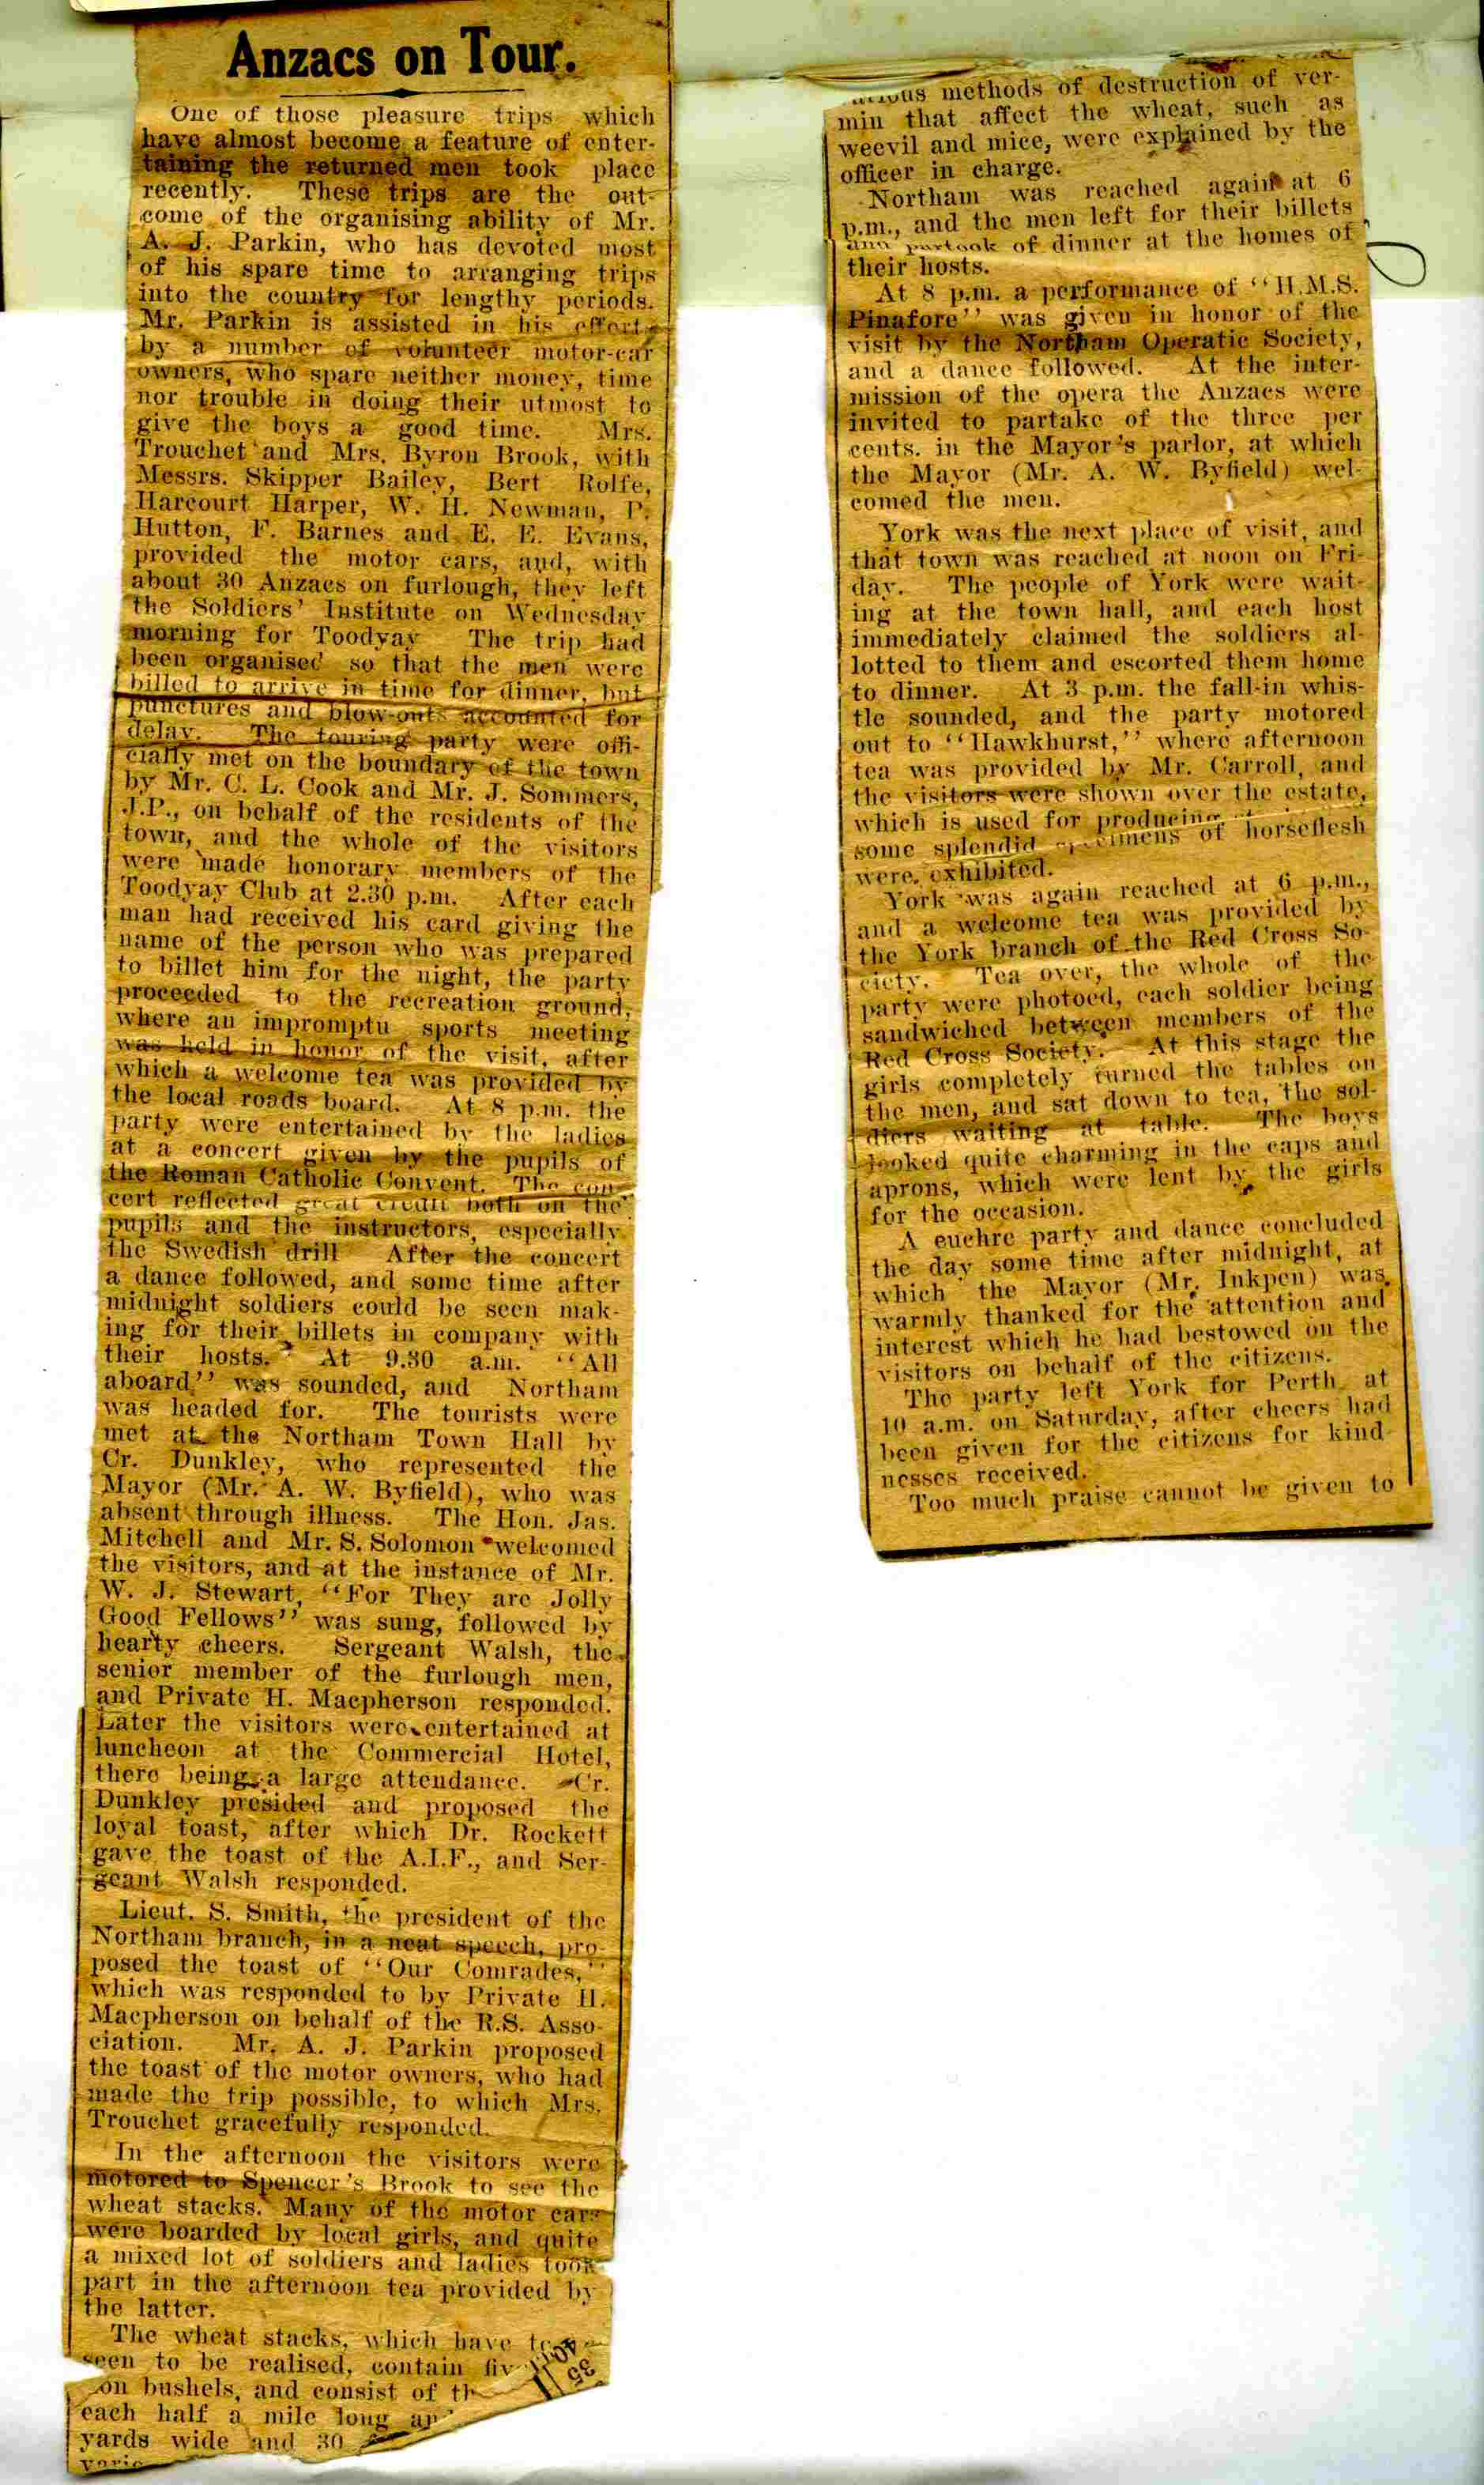 Anzacs on Tour.
One of those pleasure trips which
have almost become a feature of enter-
taining the returned men took place
recently. These trips are the out-
come of the organising ability of Mr.
A. J. Parkin, who has devoted most
of his spare time to arranging trips
into the country for lengthy periods.
Mr. Parkin is assisted in his efforts
by a number of volunteer motor-car
owners, who spare neither money, time
nor trouble in doing their utmost to
give the boys a good time. Mrs.
Trouchet and Mrs. Byron Brook, with
Messrs. Skipper Bailey, Bert Rolfe,
Harcourt Harper, W. H. Newman, P.
Hutton, F. Barnes and E. E. Evans,
provided the motor cars, and, with
about 30 Anzacs on furlough, they left
the Soldiers' Institute on Wednesday
morning for Toodyay The trip had
been organised so that the men were
billed to arrive in time for dinner, but
punctures and blow-outs accounted for
delay. The touring party were offi-
cially met on the boundary of the town
by Mr. C. L. Cook and Mr. J. Sommers,
J.P., on behalf of the residents of the
town, and the whole of the visitors
were made honorary members of the
Toodyay Club at 2.30 p.m. After each
man had received his card giving the
name of the person who was prepared
to billet him for the night, the party
proceeded to the recreation ground,
where an impromptu sports meeting
was held in honor of the visit, after
which a welcome tea was provided by
the local roads board. At 8 p.m. the
party were entertained by the ladies
at a concert given by the pupils of
the Roman Catholic Convent. The con-
cert reflected great credit both on the
pupils and the instructors, especially
the Swedish drill After the concert
a dance followed, and some time after
midnight soldiers could be seen mak-
ing for their billets in company with
their hosts. At 9.30 a.m. "All
aboard" was sounded, and Northam
was headed for. The tourists were
met at the Northam Town Hall by
Cr. Dunkley, who represented the
Mayor (Mr. A. W. Byfield), who was
absent through illness. The Hon. Jas.
Mitchell and Mr. S. Solomon welcomed
the visitors, and at the instance of Mr.
W. J. Stewart, "For They are Jolly
Good Fellows" was sung, followed by
hearty cheers. Sergeant Walsh, the
senior member of the furlough men,
and Private H. Macpherson responded.
Later the visitors were entertained at
luncheon at the Commercial Hotel,
there being a large attendance. Cr.
Dunkley presided and proposed the
loyal toast, after which Dr. Rockett
gave the toast of the A.I.F., and Ser-
geant Walsh responded.
Lieut. S. Smith, the president of the
Northam branch, in a neat speech, pro-
posed the toast of "Our Comrades,"
which was responded to by Private H.
Macpherson on behalf of the R.S. Asso-
ciation. Mr. A. J. Parkin proposed
the toast of the motor owners, who had
made the trip possible, to which Mrs.
Trouchet gracefully responded.
In the afternoon the visitors were
motored to Spencer's Brook to see the
wheat stacks. Many of the motor cars
were boarded by local girls, and quite
a mixed lot of soldiers and ladies took
part in the afternoon tea provided by
the latter.
The wheat stacks, which have
seen to be realised, contain
bushels, and consist of
each half a mile long
yards wide and 30
35
methods of destruction of ver-
min that affect the wheat, such as
weevil and mice, were explained by the
officer in charge.
Northam was reached again at 6
p.m., and the men left for their billets
and partook of dinner at the homes of
their hosts.
At 8 p.m. a performance of "H.M.S.
Pinafore" was given in honor of the
visit by the Northam Operatic Society,
and a dance followed. At the inter-
mission of the opera the Anzacs were
invited to partake of the three per
cents. in the Mayor's parlor, at which
the Mayor (Mr. A. W. Byfield) wel-
comed the men.
York was the next place of visit, and
that town was reached at noon on Fri-
day. The people of York were wait-
ing at the town hall, and each host
immediately claimed the soldiers al-
lotted to them and escorted them home
to dinner. At 3 p.m. the fall-in whis-
tle sounded, and the party motored
out to "Hawkhurst," where afternoon
tea was provided by Mr. Carroll, and
the visitors were shown over the estate,
which is used for producing
some splendid specimens of horseflesh
were exhibited.
York was again reached at 6 p.m.,
and a welcome tea was provided by
the York branch of the Red Cross So-
ciety. Tea over, the whole of the
party were photoed, each soldier being
sandwiched between members of the
Red Cross Society. At this stage the
girls completely turned the tables on
the men, and sat down to tea, the sol-
diers waiting at table. The boys
looked quite charming in the caps and
aprons, which were lent by the girls
for the occasion.
A euchre party and dance concluded
the day some time after midnight, at
which the Mayor (Mr. Inkpen) was
warmly thanked for the attention and
interest which he had bestowed on the
visitors on behalf of the citizens.
The party left York for Perth at
10 a.m. on Saturday, after cheers had
been given for the citizens for kind-
nesses received.
Too much praise cannot be given to